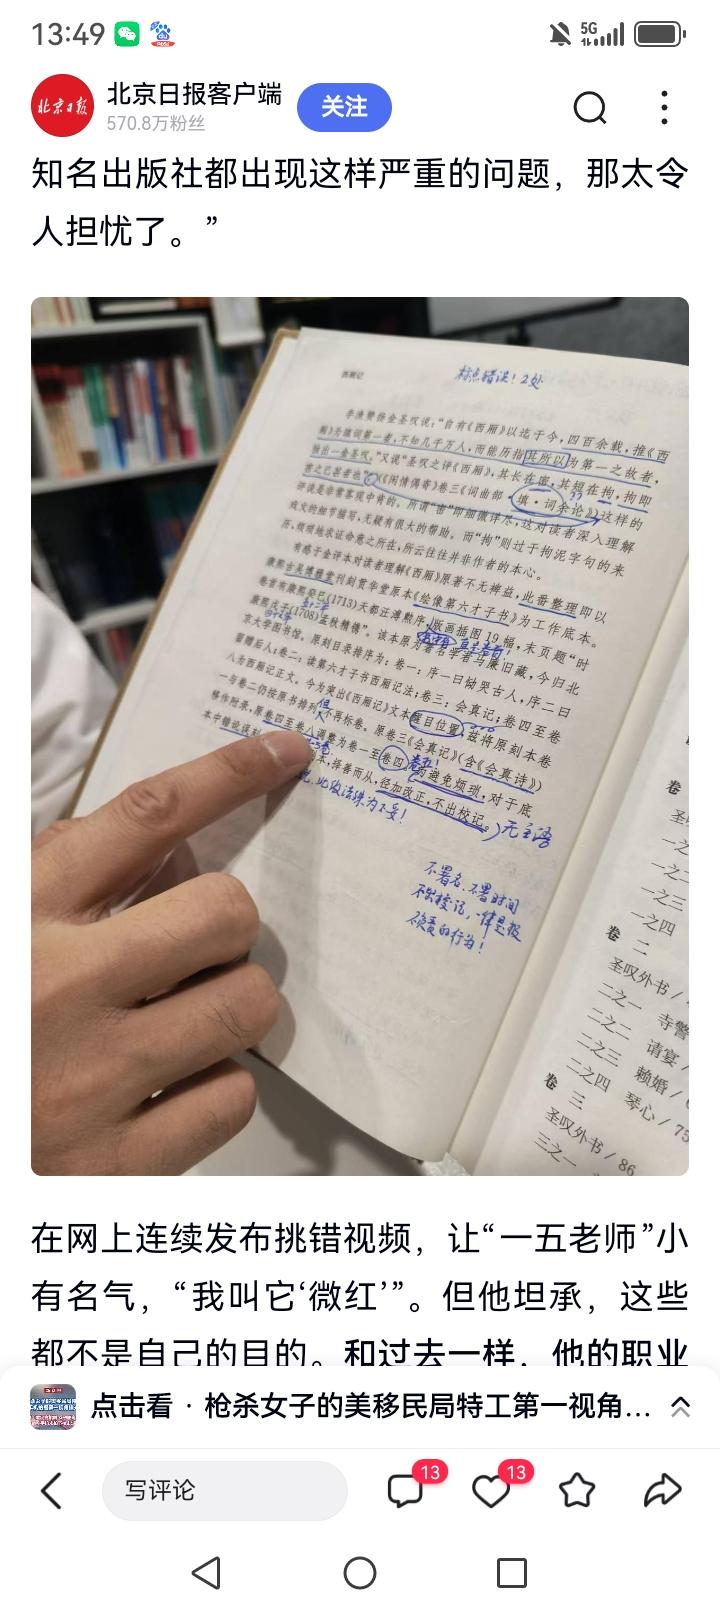 13:49
5G
北京日报客户端
570.8万粉丝
关注
知名出版社都出现这样严重的问题，那太令
人担忧了。”
西厢记
标点错误！2处
李渔赞扬金圣叹说：“自有《西厢》以迄于今，四百余载，推《西
厢》为填词第一者，不知几千万人，而能历指其所以为第一之故者，
独出一金圣叹。”又说“圣叹之评《西厢》，其长在密，其短在拘，拘即
密之已甚者也”（《闲情偶寄》卷三《词曲部·填·词余论》）这样的
评说是非常客观中肯的。所谓“密”即细微详尽，这对读者深入理解
戏文的细节描写，无疑有很大的帮助。而“拘”则过于拘泥字句的来
历，琐琐地求证命意之所在，所云往往并非作者的本心。
有感于金评本对读者理解《西厢》原著不无裨益，此番整理即以
康熙吉吴博雅堂刊刻贯华堂原本《绘像第六才子书》为工作底本。
卷首有康熙癸巳(1713)天都汪溥熙序，版画插图19幅，末页题“时
康熙戊子(1708)孟秋精镌”。该本原为著名学者马廉旧藏，今归北
京大学图书馆。原刻目录排序为：卷一：序一曰恸哭古人，序二曰
留赠后人；卷二：读第六才子书西厢记法；卷三：会真记；卷四至卷
八为西厢记正文。今为突出《西厢记》文本醒目位置，兹将原刻本卷
一与卷二仍按原书排列，不再标卷。原卷三《会真记》（含《会真诗》）
但
移作附录，原卷四至卷八调整为卷一至卷四，为避免烦琐，对于底
卷五！
本中错讹误刻
本，择善而从，径加改正，不出校记。
无主语
此改法殊为不妥！
不署名、不署时间
不出校记，一律是极
不负责的行为！
卷
圣叹
一之
一之二
一之三
一之四
卷 二
圣叹外书 /
二之一 寺警
二之二 请宴 /
二之三 赖婚 /
二之四 琴心 / 75
卷 三
圣叹外书 / 86
三之一
在网上连续发布挑错视频，让“一五老师”小
有名气，“我叫它‘微红’”。但他坦承，这些
都不是自己的目的。和过去一样，他的职业
点击看 · 枪杀女子的美移民局特工第一视角...
写评论
13
13